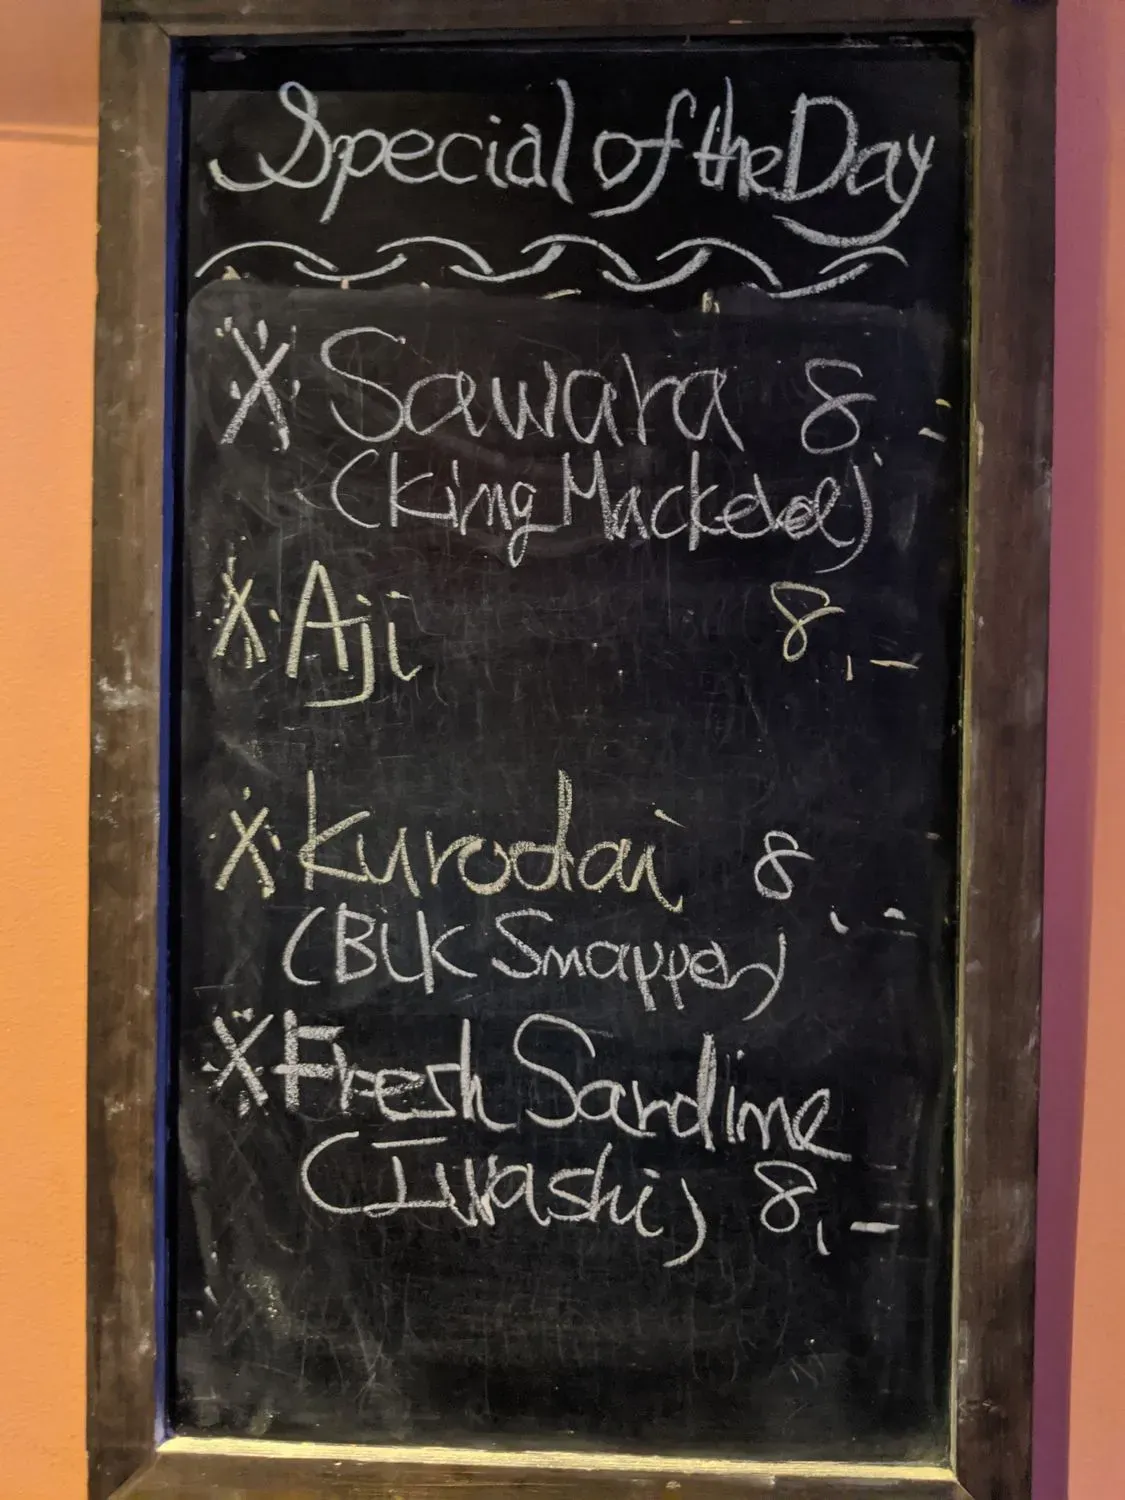 Special of the Day
※ Sawara 8,-
(King Mackerel)
※ Aji 8,-
※ Kurodai 8,-
(BLK Snapper)
※ Fresh Sardine
(Iwashi) 8,-